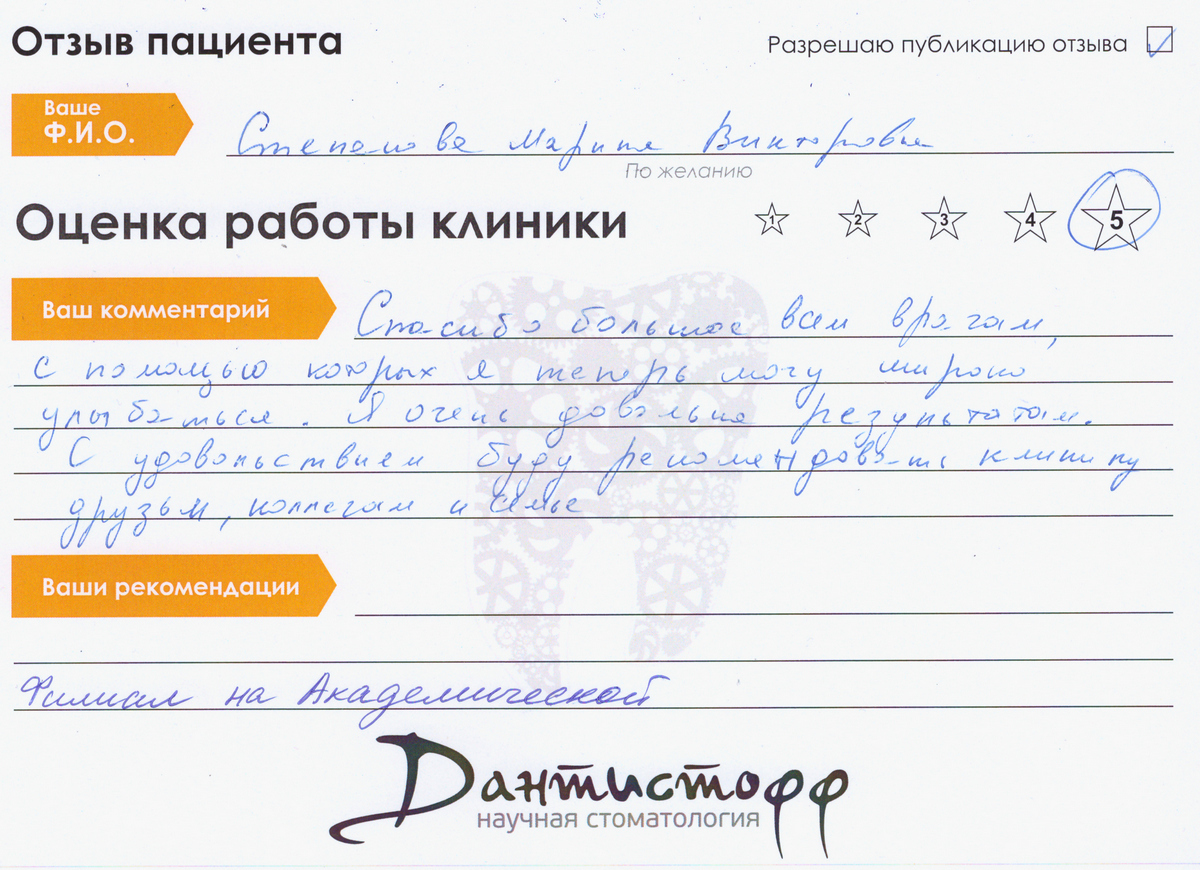 Отзыв пациента
Разрешаю публикацию отзыва
Ваше
Ф.И.О.
Степанова Марина Викторовна
По желанию
Оценка работы клиники
1 2 3 4 5
Ваш комментарий
Спасибо большое всем врачам,
с помощью которых я теперь могу широко
улыбаться. Я очень довольна результатом.
С удовольствием буду рекомендовать клинику
друзьям, коллегам и семье
Ваши рекомендации
Филиал на Академической
Дантистофф
научная стоматология